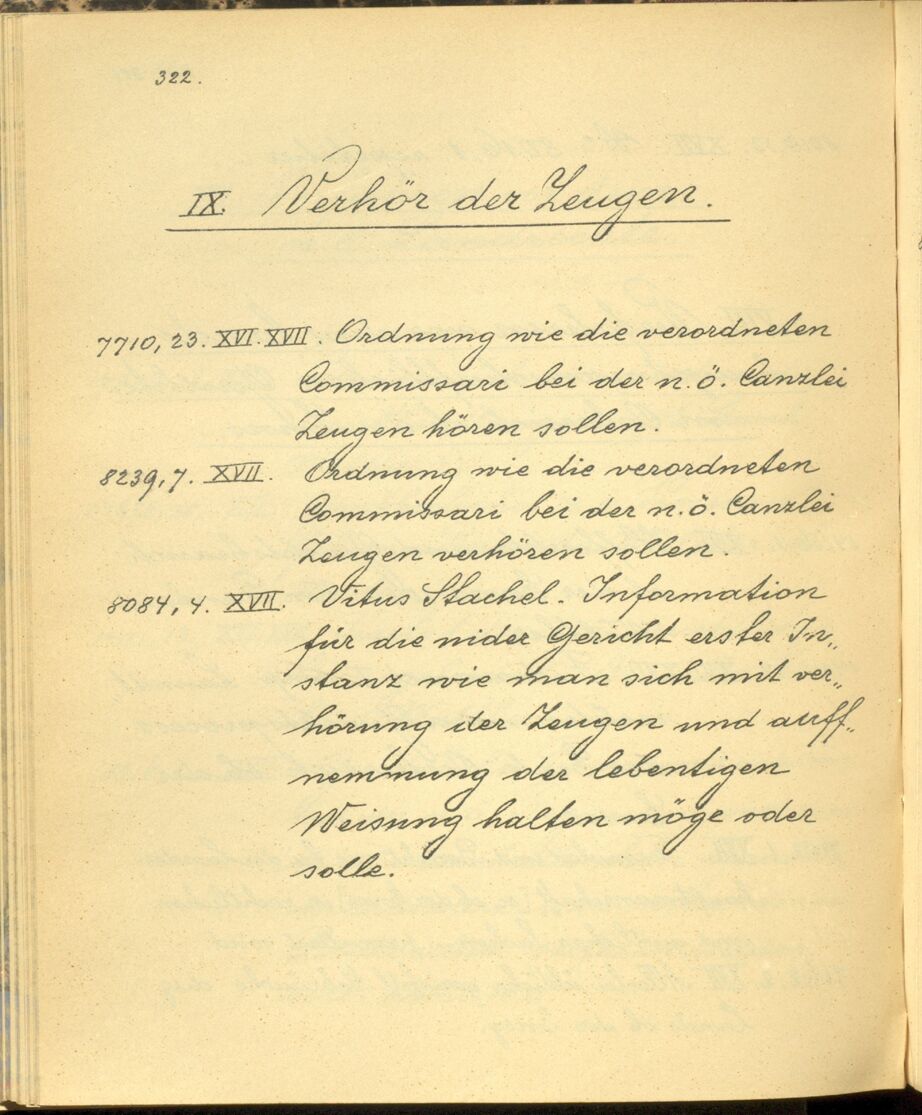 322.
IX. Verhör der Zeugen.
7710, 23. XVI. XVII. Ordnung wie die verordneten
Commissari bei der n. ö. Canzlei
Zeugen hören sollen.
8239, 7. XVII. Ordnung wie die verordneten
Commissari bei der n. ö. Canzlei
Zeugen verhören sollen.
8084, 4. XVII. Vitus Stachel. Information
für die nider Gericht erster In„
stanz wie man sich mit ver„
hörung der Zeugen und auff„
nemmung der lebentigen
Weisung halten möge oder
solle.